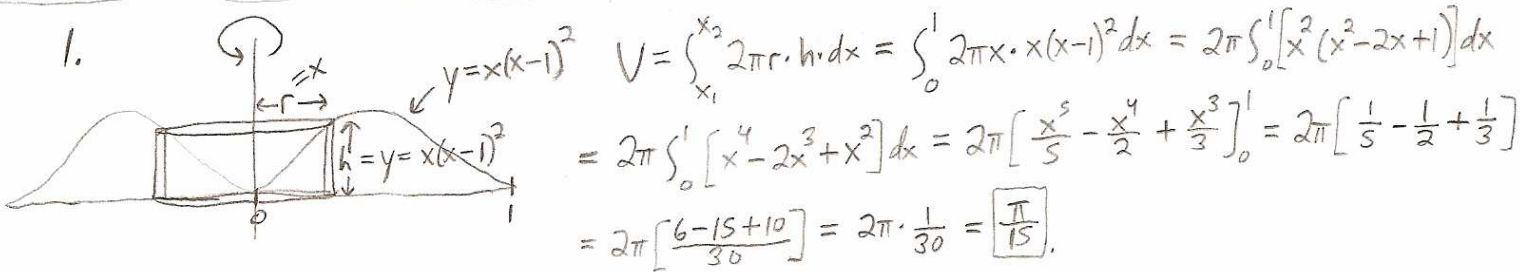 1.
r = x
y = x(x-1)²
h = y = x(x-1)²
0
1
V = ∫_{x₁}^{x₂} 2πr·h·dx = ∫₀¹ 2πx·x(x-1)² dx = 2π∫₀¹[x²(x²-2x+1)]dx
= 2π∫₀¹[x⁴-2x³+x²]dx = 2π[x⁵/5 - x⁴/2 + x³/3]₀¹ = 2π[1/5 - 1/2 + 1/3]
= 2π[(6-15+10)/30] = 2π·1/30 = π/15.